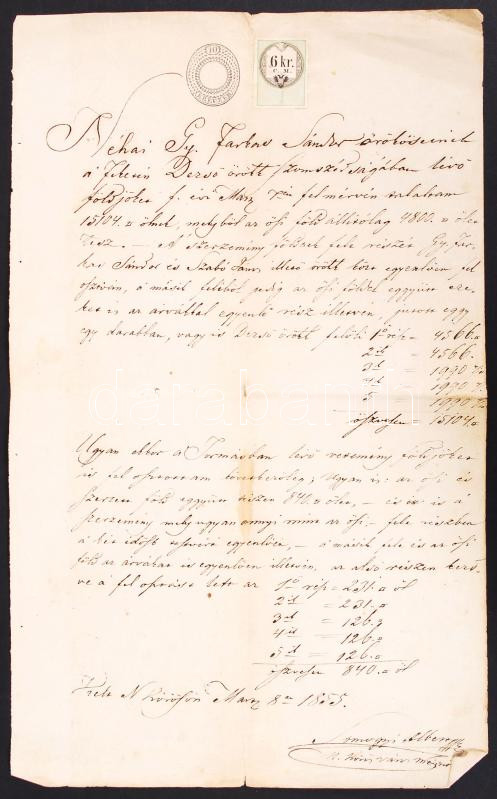 6 kr.
C. M.
Néhai Gy. Farkas Sándor örököseinek
a Dezső örött szomszédságában lévő
földjöket f. évi Marz felmérvén találtam
15104. □ ölnek, melyből az ősi föld állítólag 4800. □ ölet
tesz. – A szerzemény földnek fele részét Gy. Far-
kas Sándor és Szabó illető örött közt egyenlően fel
osztván, a másik feléből pedig az ősi földel együtt
is az árváttal egyenlő rész illetvén, jutott egy
egy darabban, vagyis Dezső örött felőli 1ő rész = 4566.□
2ik = 4566.
3ik = 1990
4ik = 1990
5 = 1990
összvesen = 15104.□
Ugyan ebbor a Tormásban lévő földjöket
is fel osztottam következőleg; ugyan is: az ősi és
szerzett föld együtt részen 840.□ ölet, – és is a
szerzemény mely ugyan annyi mint az ősi – fele részben
a két idősb egyenlően, – a másik fele és az ősi
föld az árvákat is egyenlően illetvén, az alsó részen kezd-
ve a fel osztás lett az 1ő rész = 231.□ öl
2ik = 231.□
3ik = 126.□
4ik = 126.□
5ik = 126.□
összvesen 840.□ öl
Kelt N Körösön Marz 8án 1855.
Somogyi Albert
N. Kőrös város